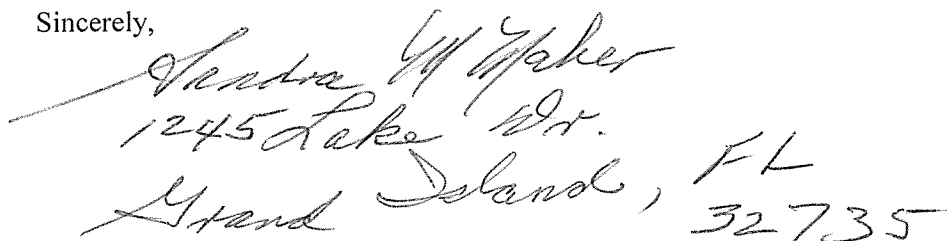 Sincerely,
Sandra M Maher
1245 Lake Dr.
Grand Island, FL
32735